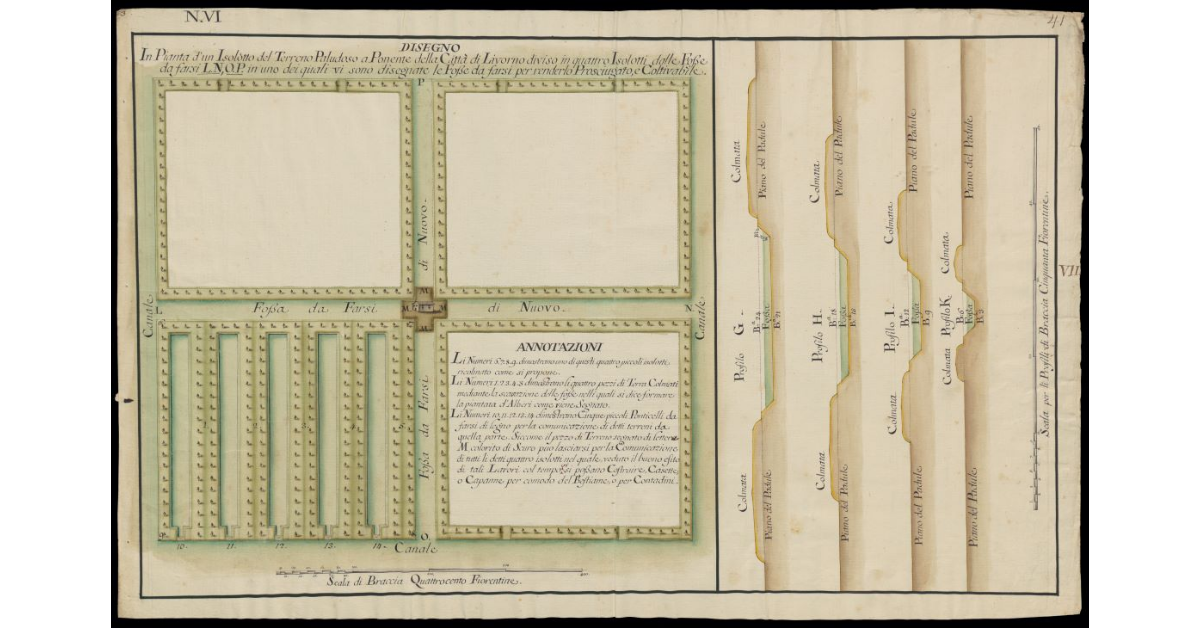 N.VI
41
DISEGNO
In Pianta d'un Isolotto del Terreno Paludoso a Ponente della Città di Livorno diviso in quattro Isolotti dalle Foße
da farsi L.N.O.P. in uno dei quali vi sono disegnate le Foße da farsi per renderlo Prosciugato, e Coltivabile.
P.
di Nuovo.
Canale.
L.
Foßa da Farsi
M
M
M
di Nuovo.
N.
Canale.
Foßa da Farsi
1.
2.
3.
4.
5.
10.
11.
12.
13.
14.
O.
Canale
ANNOTAZIONI
Li Numeri 5.7.8.9. dimostrano uno di quelli quattro piccoli isolotti,
ricolmato come si propone.
Li Numeri 1.2.3.4.5 dimostrano li quattro pezzi di Terra Colmati
mediante la scavazione delle foße nelli quali si dice formare
la piantata d'Alberi come viene Segnato.
Li Numeri 10.11.12.13.14 dimostrano Cinque piccoli Ponticelli da
farsi di legno per la comunicazione di detti terreni da
quella parte. Siccome il pezzo di Terreno segnato di lettera
M colorito di Scuro può lasciarsi per la Comunicazione
di tutti li detti quattro isolotti nel quale, veduto il buono esito
di tali Lavori col tempo si poßano Costruire Casette,
o Capanne per comodo del Bestiame, o per Contadini.
Scala di Braccia Quattrocento Fiorentine.
Colmata
Piano del Padule
Profilo G.
B.a 24
Foßa
B.a 21
Colmata
Piano del Padule
Colmata
Piano del Padule
Profilo H.
B.a 18
Foßa
Colmata
Piano del Padule
Colmata
Piano del Padule
Profilo I.
B.a 12
Foßa
B. 9
Colmata
Piano del Padule
Colmata
Piano del Padule
Profilo K.
B. 6
Foßa
B. 3
Colmata
Piano del Padule
Scala per li Profili di Braccia Cinquanta Fiorentine.
VII